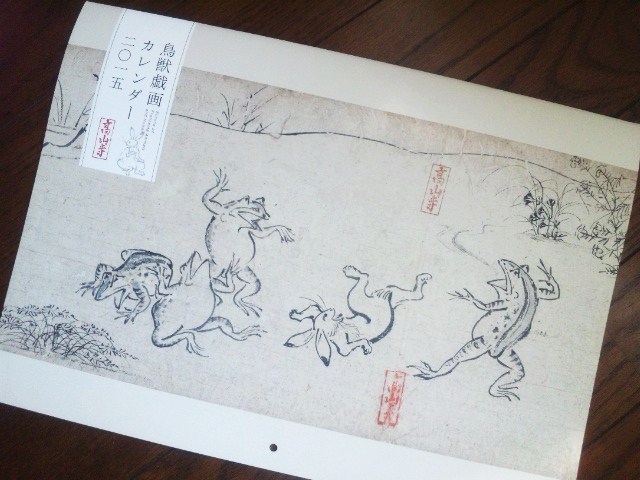 鳥獣戯画
カレンダー
二〇一五
高山寺
高山寺
高山寺